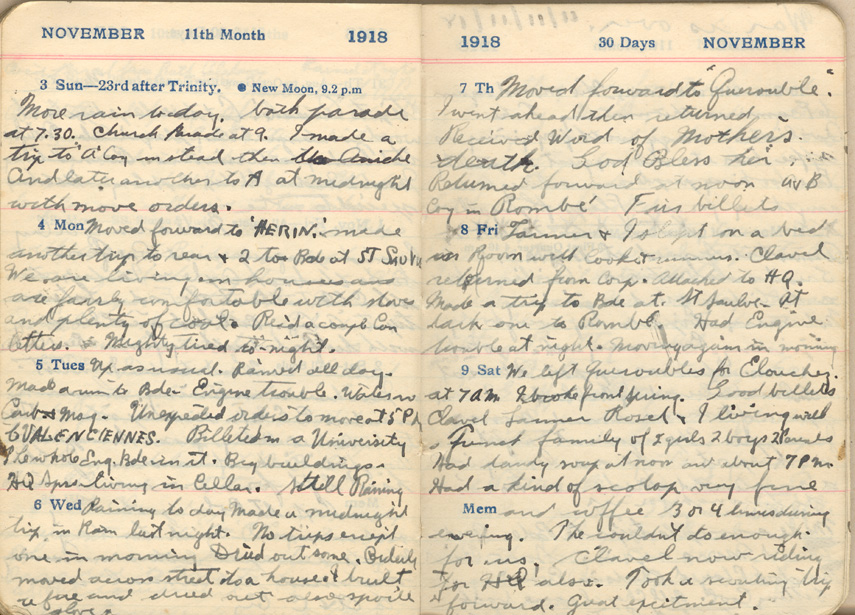 NOVEMBER 11th Month 1918
3 Sun—23rd after Trinity. ● New Moon, 9.2 p.m
More rain today. both parade
at 7.30. Church Parade at 9. I made a
trip to "A" Coy instead then Aniche
And later another to A at midnight
with move orders.
4 Mon Moved forward to 'HERIN.' made
another trip to rear & 2 to Bde at ST
We are living in houses and
are fairly comfortable with stoves
and plenty of coal. Rec'd a coupl Can
letters. Mighty tired to-night.
5 Tues Up as usual. Rained all day.
Made a run to Bde. Engine trouble. Water in
Carb & Mag. Unexpected orders to move at 5 PM
to VALENCIENNES. Billeted in a University
The whole Eng. Bde in it. Big buildings.
HQ Sprs living in Cellar. Still Raining
6 Wed Raining to day Made a midnight
trip in Rain last night. No trips except
one in morning Dried out some.
moved across street to a house & built
a fire and dried out also
1918 30 Days NOVEMBER
7 Th Moved forward to "Querouble".
I went ahead then returned
Received Word of Mothers.
death. God Bless her
Returned forward at noon A & B
Coy in Rombé Fair billets
8 Fri Tanner & I slept on a bed
Room with cook Clavel
returned from Corp. Attached to HQ.
Made a trip to Bde at. St Saulve. At
dark one to Rombé Had Engine
trouble at night. Moving again in morning
9 Sat We left Querouble for
at 7 AM I broke front spring. Good billets
Clavel Tanner & I living with
a Great family of 2 girls 2 boys
Had dandy soup at noon and about 7 PM
Had a kind of very fine
Mem and coffee 3 or 4 times during
evening. The couldn't do enough.
for us. Clavel now riding
for HQ also. Took a scouting trip
forward. Great excitment.